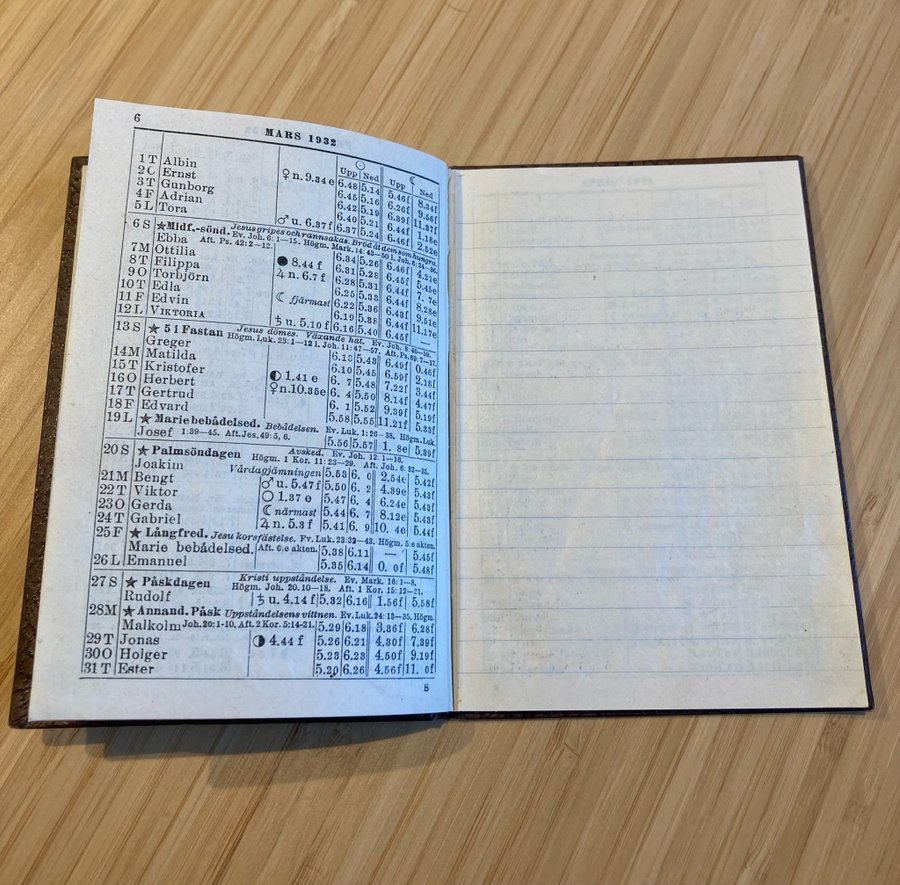 6
MARS 1932
☉ ☾
Upp Ned Upp Ned
1 T Albin 6.48 5.14 5.46f 8.34f
2 O Ernst ♀ n. 9.34 e 6.45 5.16 6.26f 9.56f
3 T Gunborg 6.42 5.19 6.39f 11.37f
4 F Adrian 6.40 5.21 6.44f 1.18e
5 L Tora ♂ u. 6.37 f 6.37 5.24 6.46f 2.52e
6 S ★ Midf.-sönd. Jesus gripes och rannsakas. Bröd åt dem som hungra.
Ev. Joh. 6: 1—15. Högm. Mark. 14: 43—50 1. Joh. 6: 24—36.
Ebba Aft. Ps. 42: 2—12. 6.34 5.26 6.46f 4.21e
7 M Ottilia ● 8.44 f 6.31 5.28 6.45f 5.45e
8 T Filippa ♃ n. 6.7 f 6.28 5.31 6.44f 7. 7e
9 O Torbjörn 6.25 5.33 6.44f 8.28e
10 T Edla ☾ fjärmast 6.22 5.36 6.43f 9.51e
11 F Edvin 6.19 5.38 6.44f 11.17e
12 L VIKTORIA ♄ u. 5.10 f 6.16 5.40 6.45f —
13 S ★ 5 i Fastan Jesus dömes. Växande hat. Ev. Joh. 8: 46—59.
Högm. Luk. 23: 1—12 1. Joh. 11: 47—57. Aft. Ps. 69: 7—17.
Greger 6.13 5.43 6.49f 0.46f
14 M Matilda 6.10 5.45 6.59f 2.18f
15 T Kristofer ◐ 1.41 e 6. 7 5.48 7.22f 3.44f
16 O Herbert ♀ n. 10.35e 6. 4 5.50 8.14f 4.47f
17 T Gertrud 6. 1 5.52 9.39f 5.19f
18 F Edvard 5.58 5.55 11.21f 5.33f
19 L ★ Marie bebådelsed. Bebådelsen. Ev. Luk. 1: 26—38. Högm. Luk.
Josef 1:39—45. Aft. Jes. 49: 5, 6. 5.56 5.57 1. 8e 5.39f
20 S ★ Palmsöndagen Avsked. Ev. Joh. 12: 1—16.
Högm. 1 Kor. 11: 23—29. Aft. Joh. 6: 32—35.
Joakim Vårdagjämningen 5.53 6. 0 2.54e 5.42f
21 M Bengt ♂ u. 5.47 f 5.50 6. 2 4.39e 5.43f
22 T Viktor ○ 1.37 e 5.47 6. 4 6.24e 5.43f
23 O Gerda ☾ närmast 5.44 6. 7 8.12e 5.43f
24 T Gabriel ♃ n. 5.3 f 5.41 6. 9 10. 4e 5.44f
25 F ★ Långfred. Jesu korsfästelse. Ev. Luk. 23: 32—43. Högm. 5:e akten.
Marie bebådelsed. Aft. 6:e akten. 5.38 6.11 — 5.45f
26 L Emanuel 5.35 6.14 0. 0f 5.48f
27 S ★ Påskdagen Kristi uppståndelse. Ev. Mark. 16: 1—8.
Högm. Joh. 20. 10—18. Aft. 1 Kor. 15: 12—21.
Rudolf ♄ u. 4.14 f 5.32 6.16 1.56f 5.58f
28 M ★ Annand. Påsk Uppståndelsens vittnen. Ev. Luk. 24: 13—35. Högm.
Malkolm Joh. 20: 1-10. Aft. 2 Kor. 5:14-21. 5.29 6.18 3.36f 6.28f
29 T Jonas ◑ 4.44 f 5.26 6.21 4.30f 7.39f
30 O Holger 5.23 6.23 4.50f 9.19f
31 T Ester 5.20 6.26 4.56f 11. 0f
8